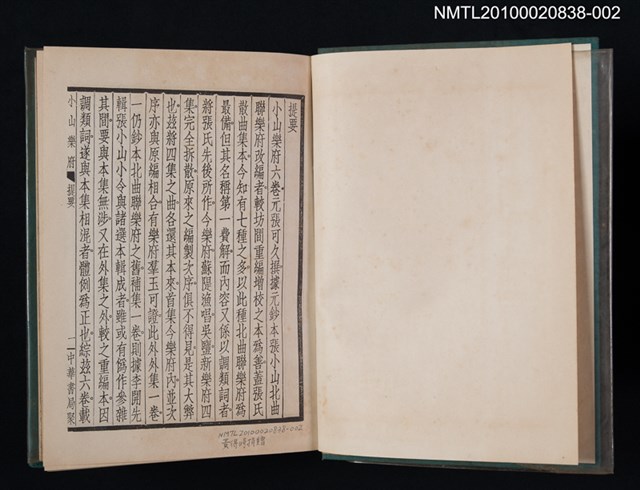 NMTL20100020838-002
提要
小山樂府六卷元張可久撰據元鈔本張小山北曲
聯樂府改編者較坊間重編增校之本爲善蓋張氏
散曲集本今知有七種之多以此種北曲聯樂府爲
最備但其名稱第一費解而內容又係以調類詞者
將張氏先後所作今樂府蘇隄漁唱吳鹽新樂府四
集完全拆散原來之編製次序俱不得見是其大弊
也玆將四集之曲各還其本來首集今樂府內並次
序亦與原編相合有樂府羣玉可證此外外集一卷
一仍鈔本北曲聯樂府之舊補集一卷則據李開先
輯張小山小令與諸選本輯成者雖或有僞作參雜
其間要與本集無涉又在外集之外較之重編本因
調類詞遂與本集相混者體例爲正也綜玆六卷載
小山樂府 提要
一 中華書局聚
NMTL20100020838-002